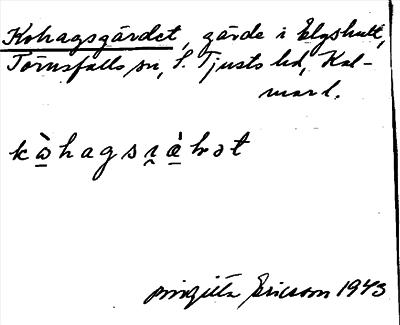 Kohagsgärdet, gärde i Elgshult,
Törnsfalls sn, S. Tjusts hd, Kal-
mar l.
Birgitta Ericson 1943